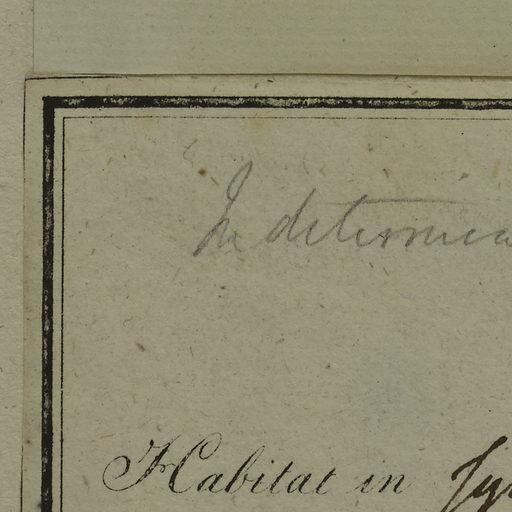 Indetermina
Habitat in